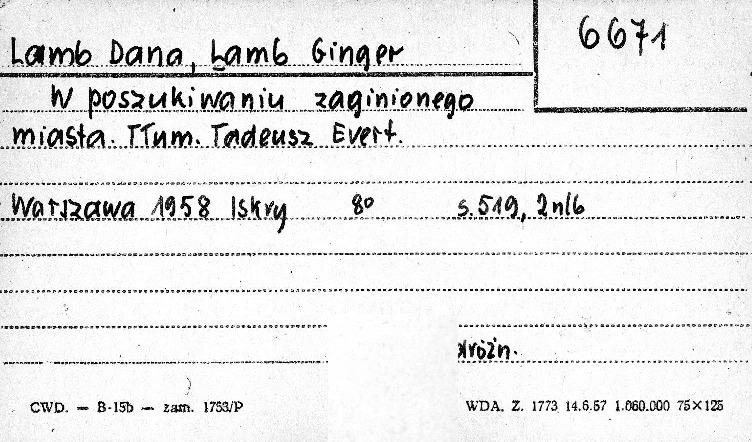 6671
Lamb Dana, Lamb Ginger
W poszukiwaniu zaginionego
miasta. Tłum. Tadeusz Evert.
Warszawa 1958 Iskry 8° s. 519, 2 nlb
CWD. — B-15b — zam. 1753/P
WDA. Z. 1773 14.6.57 1.060.000 75×125